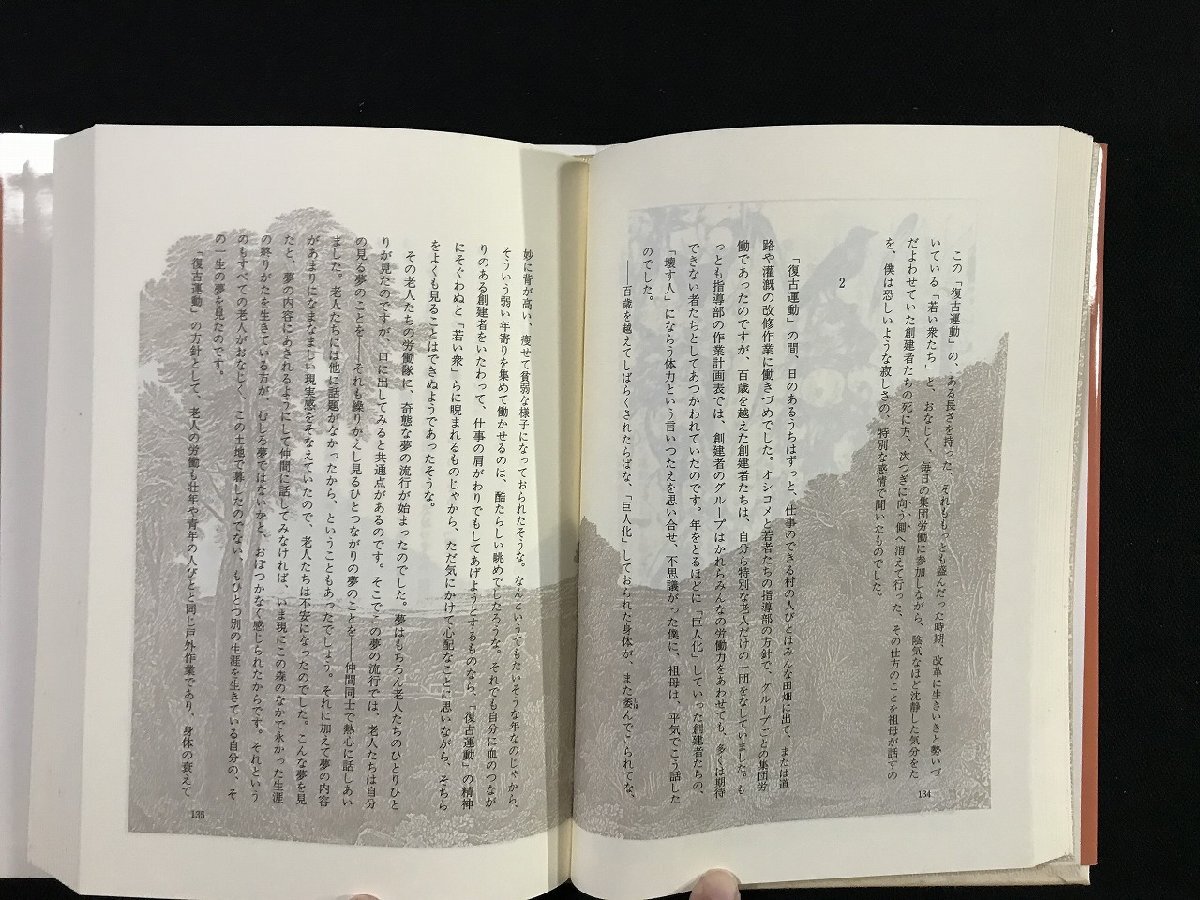 この「復古運動」の、ある長さを持った、それももっとも盛んだった時期、改革に生きいきと勢いづ
いている「若い衆たち」と、おなじく、毎日の集団労働に参加しながら、陰気なほど沈静した気分をた
だよわせていた創建者たちの死に方、次つぎに向う側へ消えて行った、その仕方のことを祖母が話すの
を、僕は恐しいような寂しさの、特別な感情で聞いたものでした。
2
「復古運動」の間、日のあるうちはずっと、仕事のできる村の人びとはみんな田畑に出て、または道
路や灌漑の改修作業に働きづめでした。オシコメと若者たちの指導部の方針で、グループごとの集団労
働であったのですが、百歳を越えた創建者たちは、自分ら特別な老人だけの一団をなしていました。も
っとも指導部の作業計画表では、創建者のグループはかれらみんなの労働力をあわせても、多くは期待
できない者たちとしてあつかわれていたのです。年をとるほどに「巨人化」していった創建者たちの、
「壊す人」にならう体力という言いつたえを思い合せ、不思議がった僕に、祖母は、平気でこう話した
のでした。
――百歳を越えてしばらくされたらばな、「巨人化」しておられた身体が、また萎んでこられてな、
134
妙に背が高い、痩せて貧弱な様子になっておられたそうな。なんというてもたいそうな年なのじゃから、
そういう弱い年寄りを集めて働かせるのに、酷たらしい眺めでしたろうな。それでも自分に血のつなが
りのある創建者をいたわって、仕事の肩がわりでもしてあげようとするものなら、「復古運動」の精神
にそぐわぬと「若い衆」らに睨まれるものじゃから、ただ気にかけて心配なことに思いながら、そちら
をよくも見ることはできぬようであったそうな。
その老人たちの労働隊に、奇態な夢の流行が始まったのでした。夢はもちろん老人たちのひとりひと
りが見たのですが、口に出してみると共通点があるのです。そこでこの夢の流行では、老人たちは自分
の見る夢のことを――それも繰りかえし見るひとつながりの夢のことを――仲間同士で熱心に話しあい
ました。老人たちには他に話題がなかったから、ということもあったでしょう。それに加えて夢の内容
があまりになまなましい現実感をそなえていたので、老人たちは不安になったのでした。こんな夢を見
たと、夢の内容にあきれるようにして仲間に話してみなければ、いま現にこの森のなかで永かった生涯
の終りがたを生きている方が、むしろ夢ではないかと、おぼつかなく感じられたからです。それという
のもすべての老人がおなじく、この土地で暮したのでない、もひとつ別の生涯を生きている自分の、そ
の一生の夢を見たのです。
「復古運動」の方針として、老人の労働も壮年や青年の人びとと同じ戸外作業であり、身体の衰えて
135